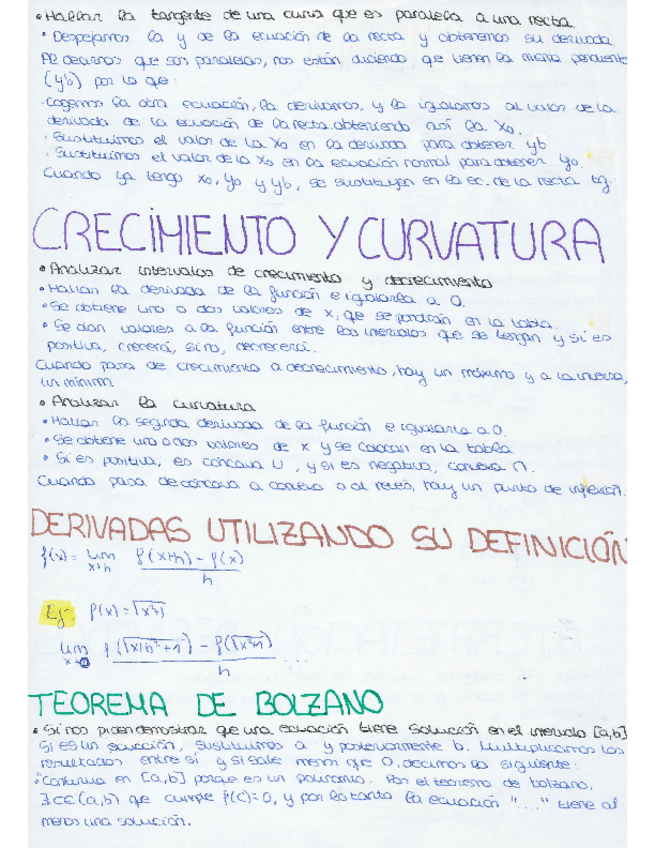 • Hallar la tangente de una curva que es paralela a una recta
• Despejamos la y de la ecuación de la recta y obtenemos su derivada
Al decirnos que son paralelas, nos están diciendo que tienen la misma pendiente
(y'o) por lo que:
· Cogemos la otra ecuación, la derivamos, y la igualamos al valor de la
derivada de la ecuación de la recta obteniendo así la Xo.
· Sustituimos el valor de la Xo en la derivada para obtener y'o
· Sustituimos el valor de la Xo en la ecuación normal para obtener Yo.
Cuando ya tengo xo, yo y y'o, se sustituyen en la ec. de la recta tg.
CRECIMIENTO Y CURVATURA
• Analizar intervalos de crecimiento y decrecimiento
• Hallan la derivada de la función e igualarla a 0.
• Se obtiene uno o dos valores de x, que se pondrán en la tabla.
• Se dan valores a la función entre los intervalos que se tengan y si es
positiva, crecerá, si no, decrecerá.
Cuando pasa de crecimiento a decrecimiento, hay un máximo y a la inversa,
un mínimo.
• Analizar la curvatura
• Hallar la segunda derivada de la función e igualarla a 0.
• Se obtiene uno o nos valores de x y se colocan en la tabla
• Si es positiva, es cóncava U, y si es negativa, convexa ∩.
Cuando pasa de cóncava a convexa o al revés, hay un punto de inflexión.
DERIVADAS UTILIZANDO SU DEFINICIÓN
f(x) = lim f(x+h) - f(x)
x→h h
Ej. f(x) =
lim
h
TEOREMA DE BOLZANO
• Si nos piden demostrar que una ecuación tiene solución en el intervalo [a,b]
Si es un ecuación, sustituimos a y posteriormente b. Multiplicamos los
resultados entre sí y si sale menor que 0, decimos lo siguiente:
"Continua en [a,b] porque es un polinomio. Por el teorema de bolzano,
∃ c∈(a,b) que cumple f(c)=0, y por lo tanto la ecuación "...." tiene al
menos una solución.